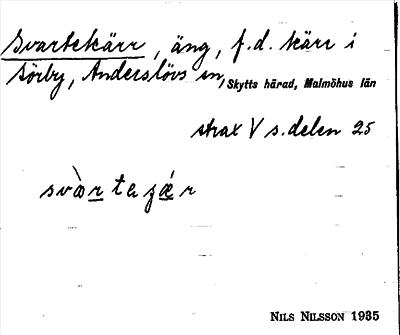 Svartekärr, äng, f.d. kärr i
Sörby, Anderslövs sn, Skytts härad, Malmöhus län
strax V s.delen 25
svàrtaʒǽr
NILS NILSSON 1935